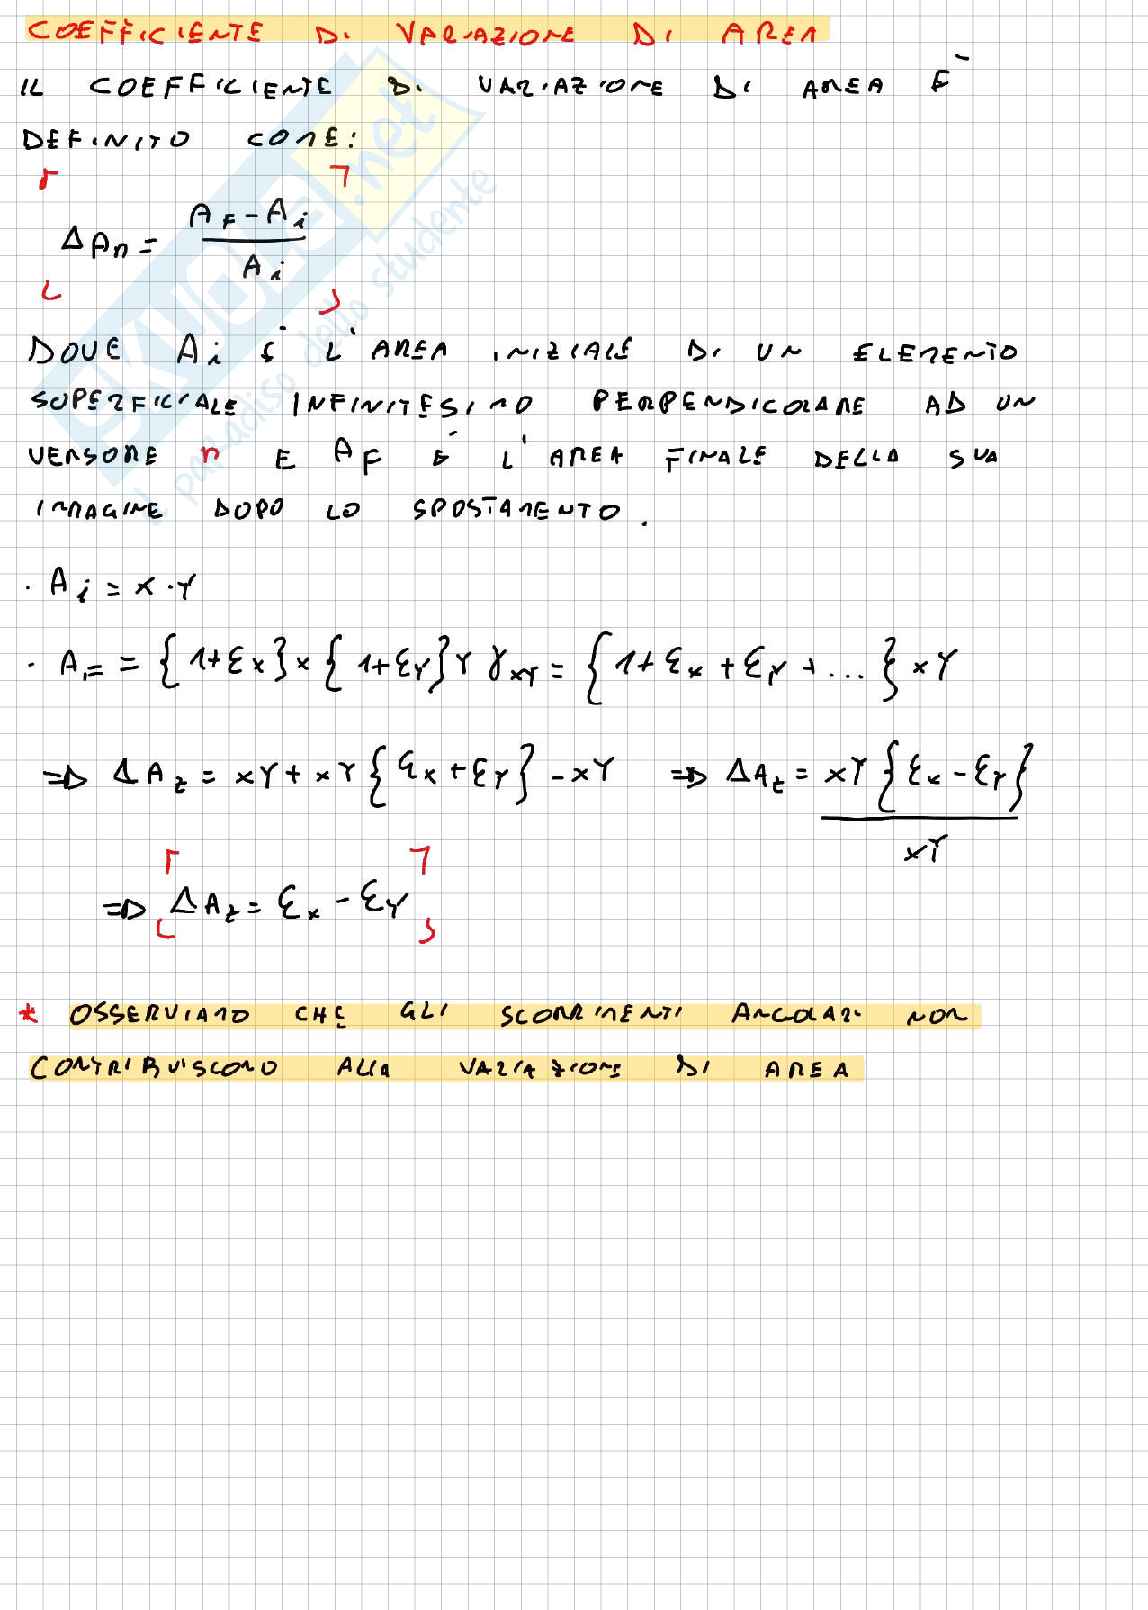 COEFFICIENTE DI VARIAZIONE DI AREA
IL COEFFICIENTE DI VARIAZIONE DI AREA È
DEFINITO COME:
ΔAn = (AF - Ai) / Ai
DOVE Ai È L'AREA INIZIALE DI UN ELEMENTO
SUPERFICIALE INFINITESIMO PERPENDICOLARE AD UN
VERSORE n E AF È L'AREA FINALE DELLA SUA
IMMAGINE DOPO LO SPOSTAMENTO.
· Ai = x · Y
· AF = {1+εx}x {1+εY}Y γxY = {1+εx+εY+...} xY
⇒ ΔAz = xY + xY {εx+εY} - xY ⇒ ΔAz = xY {εx - εY} / xY
⇒ ΔAz = εx - εY
* OSSERVIAMO CHE GLI SCORRIMENTI ANGOLARI NON
CONTRIBUISCONO ALLA VARIAZIONE DI AREA
SKUOLA.net
il paradiso dello studente